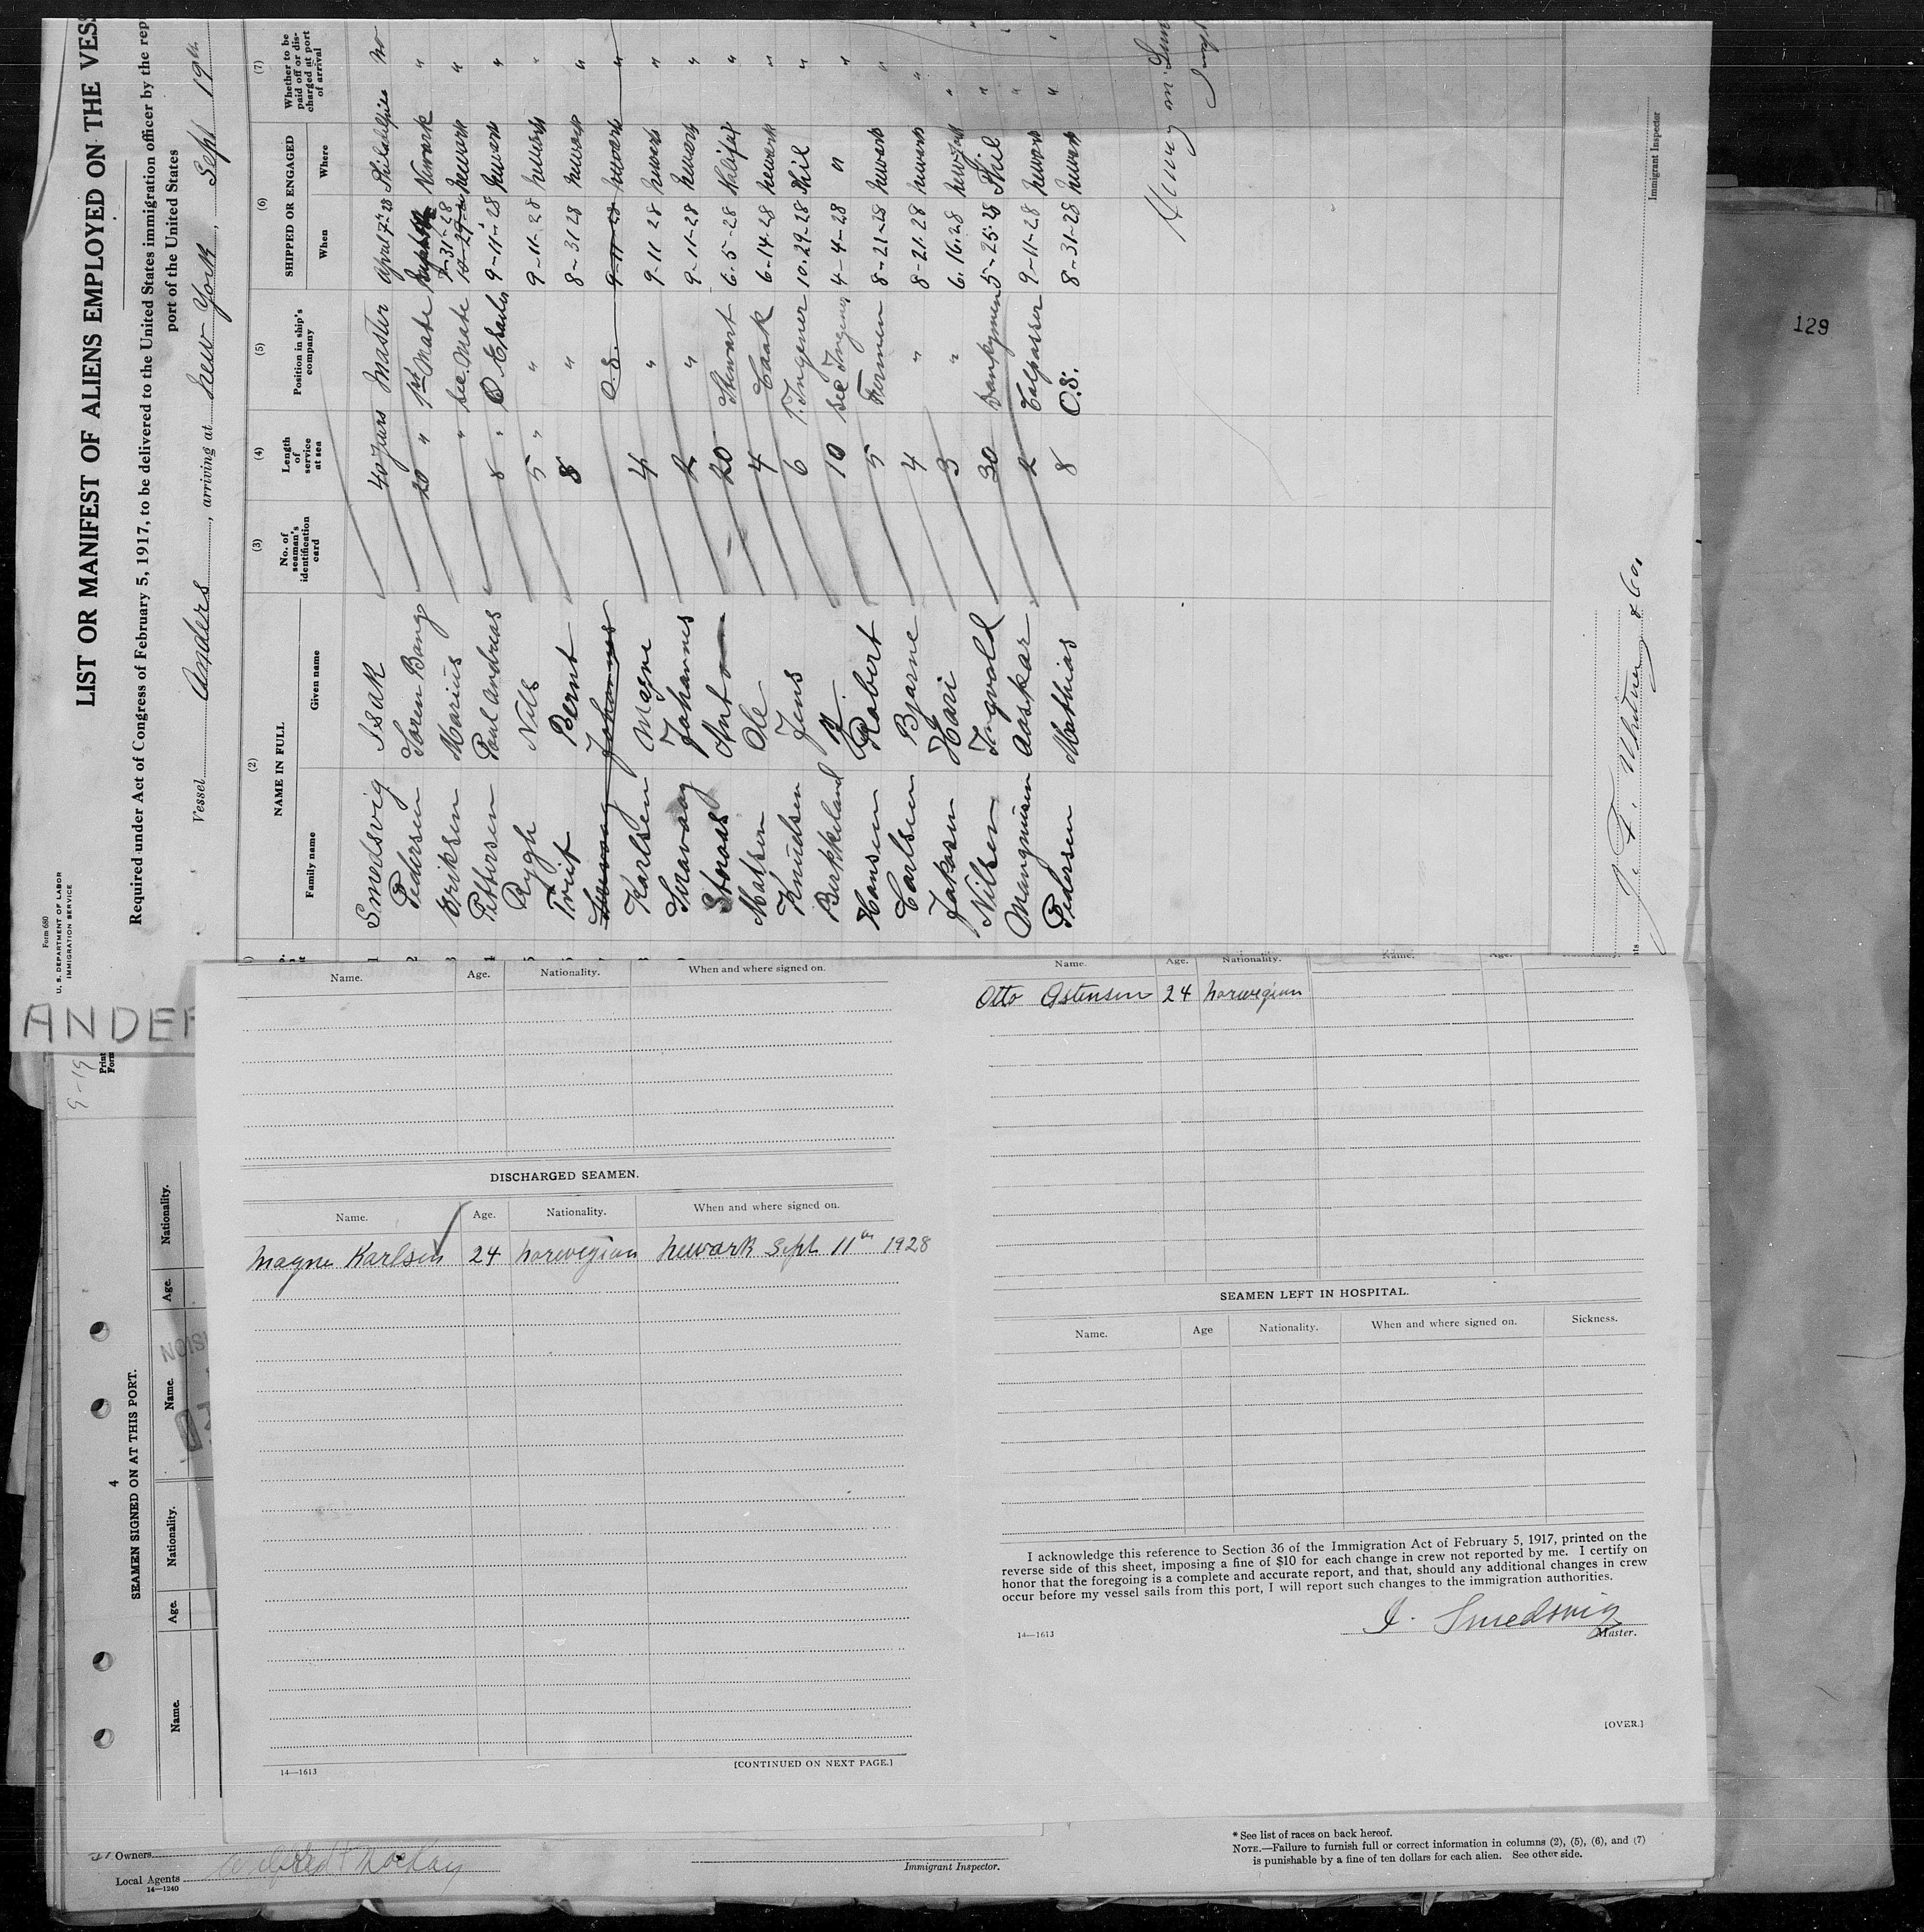 Form 680
U. S. DEPARTMENT OF LABOR
IMMIGRATION SERVICE
LIST OR MANIFEST OF ALIENS EMPLOYED ON THE VES
Required under Act of Congress of February 5, 1917, to be delivered to the United States immigration officer by the rep
port of the United States
Vessel Anders, arriving at New York, Sept 19th
(2) (3) (4) (5) (6) (7)
NAME IN FULL
Family name Given name
No. of seaman's identification card
Length of service at sea
Position in ship's company
SHIPPED OR ENGAGED
When Where
Whether to be paid off or discharged at port of arrival
1 Smedsvig Isak 40 years Master April 7th 28 Philadelphia no
2 Pedersen Soren Bang 20 " 1st Mate 7-31-28 Newark "
3 Eriksen Marius " sec. Mate 10-29- Newark "
4 Pettersen Paul Andreas 8 " 9-11-28 Newark "
5 Rygh Nils 5 " " 9-11-28 Newark "
Bernt 8 " 8-31 28 Newark "
Johannes O.S. 9-11-28 Newark "
8 Karlsen Magne 4 " 9-11 28 Newark "
Johannes 2 " 9-11-28 Newark "
20 Stewart 6-5-28 Halifax "
Matsen Ole 4 Cook 6-14-28 Newark "
Knudsen Jens 6 1. Ingener 10-29-28 Phil "
Birkkeland 10 sec Ingener 4-4-28 " "
Hansen Robert 5 8-21-28 Newark "
Carlsen Bjarne 4 " 8-21-28 Newark "
3 " 6-16-28 "
Nilsen Ingvald 30 Dankymen 5-25-28 Phil "
Aaskar 2 9-11-28 Newark "
Pedersen Mathias 8 O.S. 8-31-28 Newark "
Immigrant Inspector
& Co.
129
ANDER
9-19
4
SEAMEN SIGNED ON AT THIS PORT.
Name. Age. Nationality. Name. Age. Nationality.
Name. Age. Nationality. When and where signed on.
DISCHARGED SEAMEN.
Name. Age. Nationality. When and where signed on.
Magne Karlsen 24 Norwegian Newark Sept 11th 1928
14—1613 [CONTINUED ON NEXT PAGE.]
Name. Age. Nationality. Name. Age.
Otto Ostensen 24 Norwegian
SEAMEN LEFT IN HOSPITAL.
Name. Age Nationality. When and where signed on. Sickness.
I acknowledge this reference to Section 36 of the Immigration Act of February 5, 1917, printed on the
reverse side of this sheet, imposing a fine of $10 for each change in crew not reported by me. I certify on
honor that the foregoing is a complete and accurate report, and that, should any additional changes in crew
occur before my vessel sails from this port, I will report such changes to the immigration authorities.
I. Smedsvig
14—1613 Master.
[OVER.]
Owners
Local Agents
14—1240
Immigrant Inspector.
* See list of races on back hereof.
NOTE.—Failure to furnish full or correct information in columns (2), (5), (6), and (7)
is punishable by a fine of ten dollars for each alien. See other side.